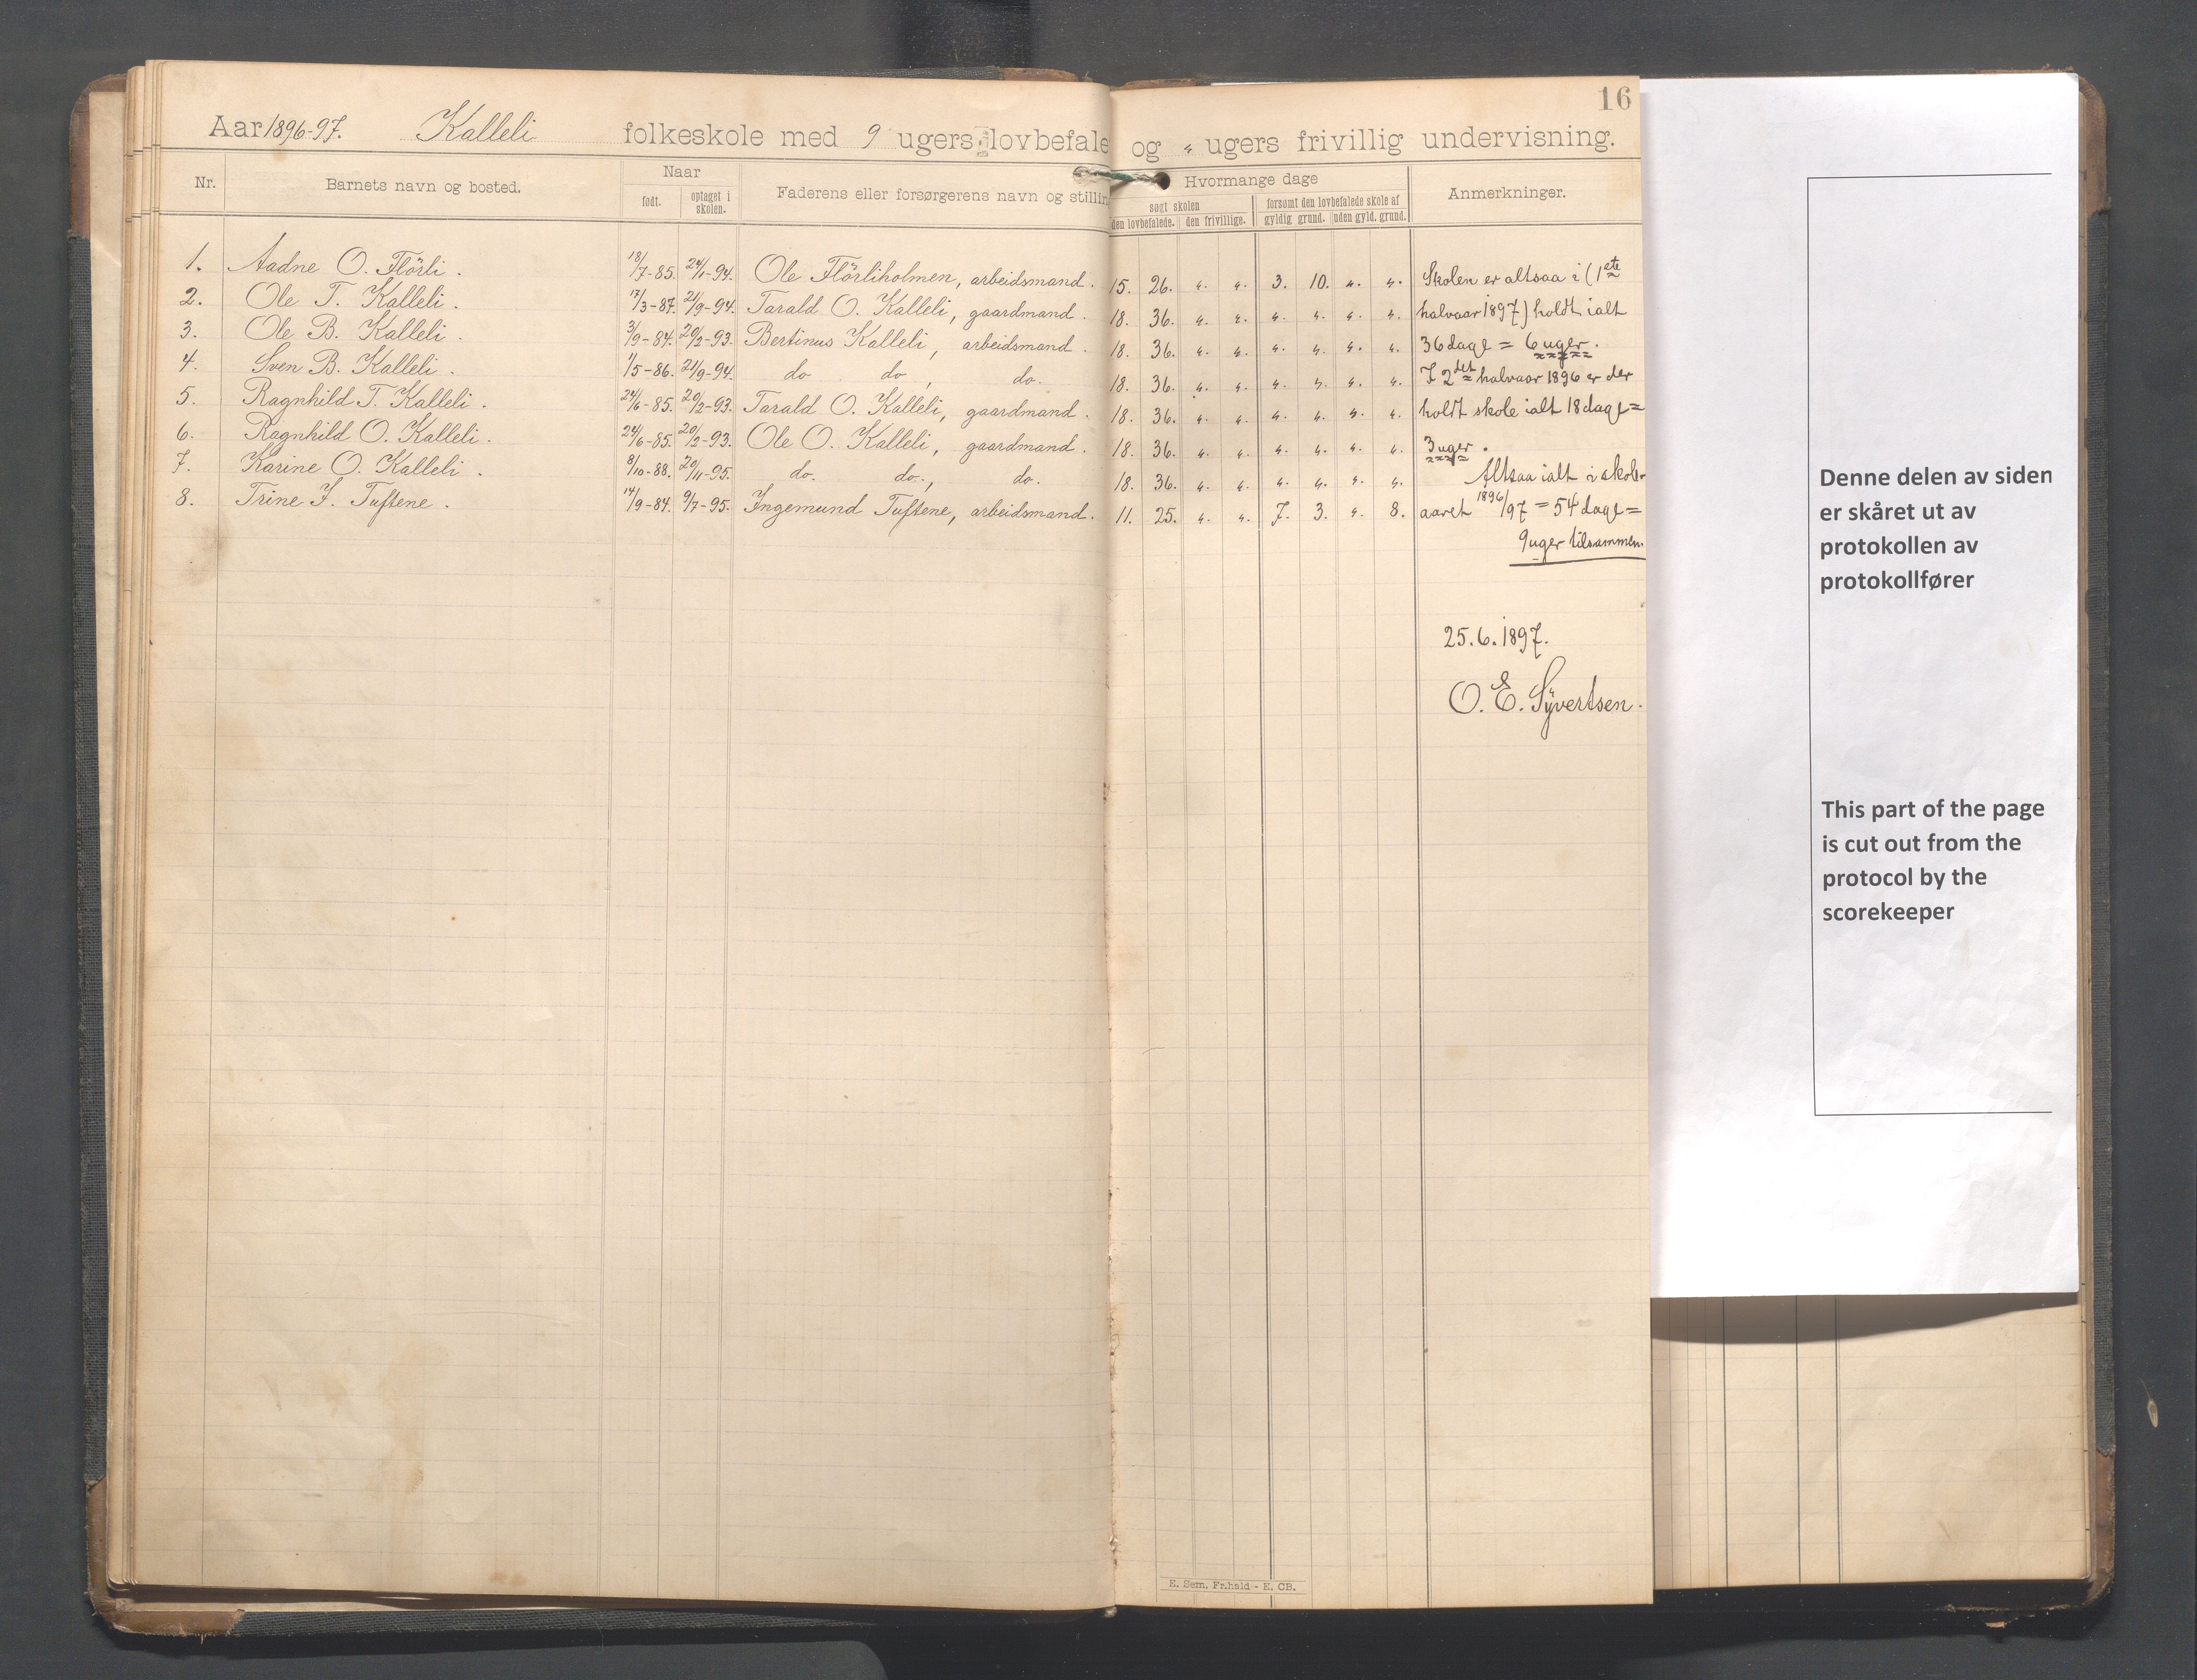 16
Aar 1896-97. Kalleli folkeskole med 9 ugers lovbefale og " ugers frivillig undervisning.
Nr. Barnets navn og bosted. Naar Faderens eller forsørgerens navn og stillin Hvormange dage Anmerkninger.
født. optaget i skolen. søgt skolen forsømt den lovbefalede skole af
den lovbefalede. den frivillige. gyldig grund. uden gyld. grund.
1. Aadne O. Flörli. 18/7-85. 24/1-94. Ole Flörliholmen, arbeidsmand. 15. 26. ". ". 3. 10. ". ". Skolen er altsaa i (1ste
2. Ole T. Kalleli. 17/3-87. 21/9-94. Tarald O. Kalleli, gaardmand. 18. 36. ". ". ". ". ". ". halvaar 1897) holdt ialt
3. Ole B. Kalleli. 3/9-84. 20/2-93. Bertinus Kalleli, arbeidsmand. 18. 36. ". ". ". ". ". ". 36 dage = 6 uger.
4. Sven B. Kalleli. 1/5-86. 21/9-94. do do, do. 18. 36. ". ". ". ". ". ". I 2det halvaar 1896 er der
5. Ragnhild T. Kalleli. 24/6-85. 20/2-93. Tarald O. Kalleli, gaardmand. 18. 36. ". ". ". ". ". ". holdt skole ialt 18 dage =
6. Ragnhild O. Kalleli. 24/6-85. 20/2-93. Ole O. Kalleli, gaardmand. 18. 36. ". ". ". ". ". ". 3 uger.
7. Karine O. Kalleli. 8/10-88. 20/11-95. do. do., do. 18. 36. ". ". ". ". ". ". Altsaa ialt i skole-
8. Trine I. Tuftene. 14/9-84. 9/7-95. Ingemund Tuftene, arbeidsmand. 11. 25. ". ". 7. 3. ". 8. aaret 1896/97 = 54 dage =
9 uger tilsammen.
25.6.1897.
O. E. Syvertsen.
E. Sem, Fr.hald - E. CB.
Denne delen av siden
er skåret ut av
protokollen av
protokollfører
This part of the page
is cut out from the
protocol by the
scorekeeper